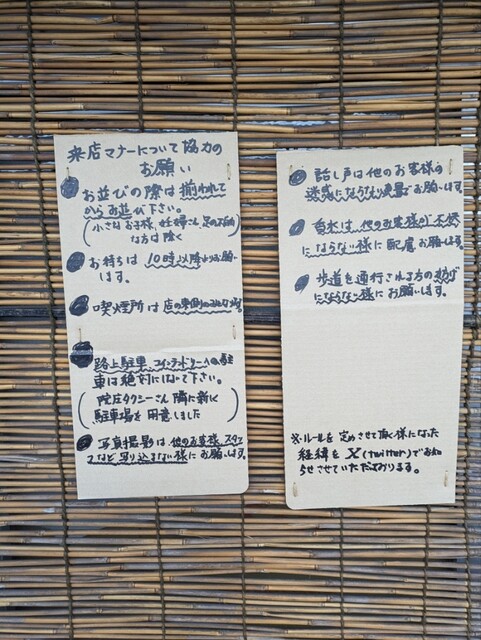 来店マナーについて協力の
お願い
お並びの際は揃われて
からお並び下さい。
(小さなお子様、妊婦さん、足の不自由
な方は除く
お待ちは 10時以降よりお願い
します。
喫煙所は店の東側のみとなります。
路上駐車、コインランドリーへの駐
車は絶対にしないで下さい。
(院庄タクシーさん隣に新しく
駐車場を用意しました)
写真撮影は他のお客様、スタッ
フなど写り込まない様にお願いします。
話し声は他のお客様の
迷惑にならない声量でお願いします。
は、他のお客様が不快
にならない様に配慮お願いします。
歩道を通行される方の妨げ
にならない様にお願いします。
※ルールを定めさせて頂く様になった
経緯を X(twitter)でお知
らせさせていただいております。